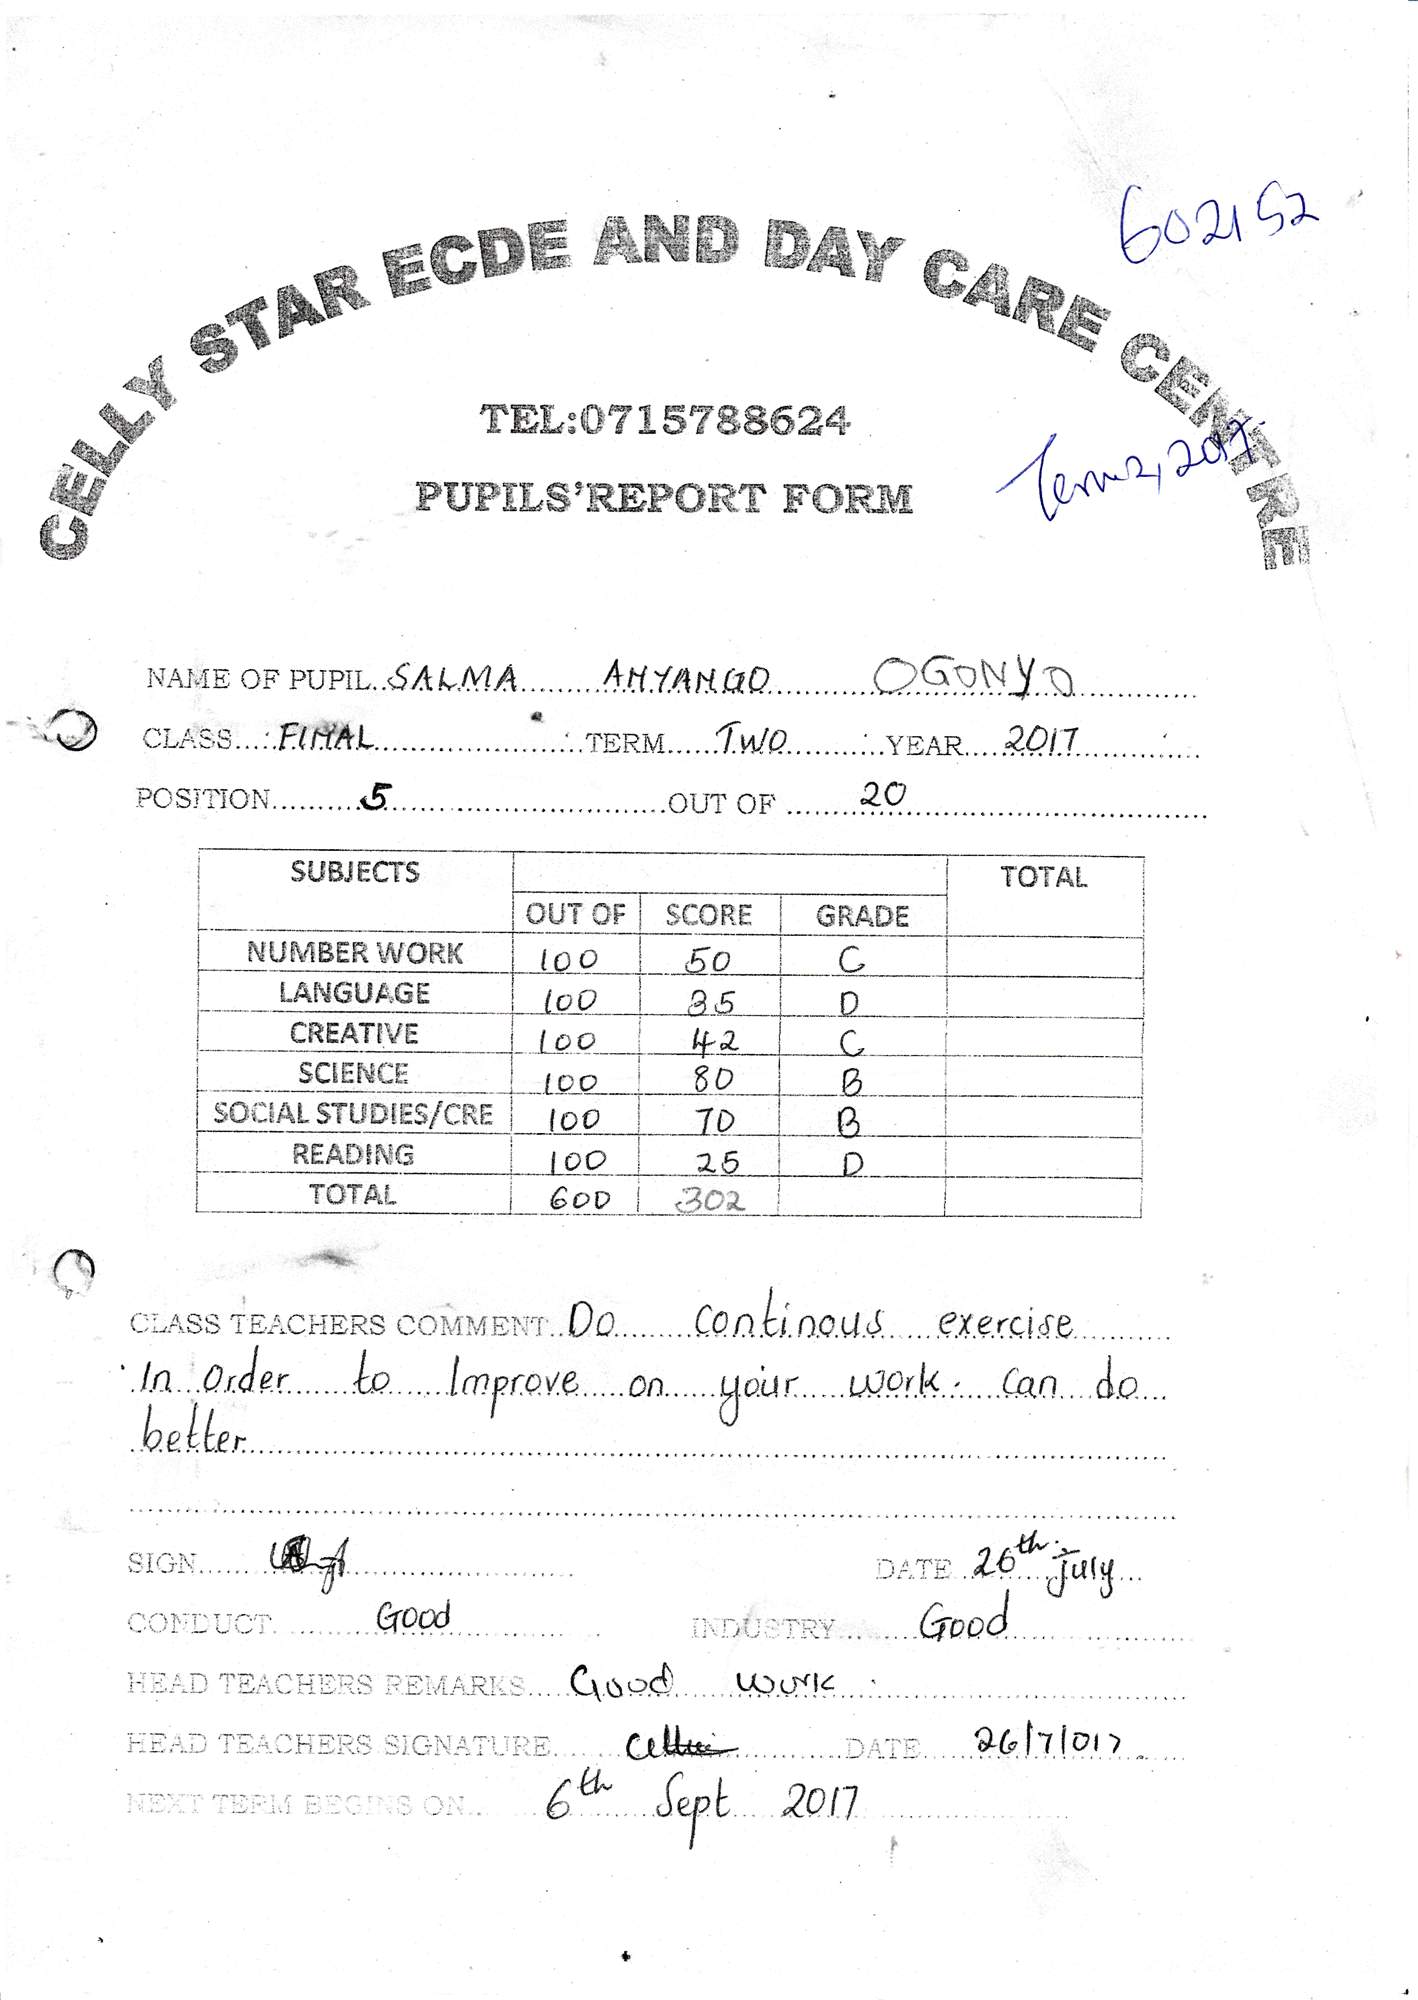 602152
CELLY STAR ECDE AND DAY CARE CENTRE
TEL:0715788624
Term 2, 2017.
PUPILS'REPORT FORM
NAME OF PUPIL SALMA ANYANGO OGONYO
CLASS FINAL TERM TWO YEAR 2017
POSITION 5 OUT OF 20
SUBJECTS TOTAL
OUT OF SCORE GRADE
NUMBER WORK 100 50 C
LANGUAGE 100 35 D
CREATIVE 100 42 C
SCIENCE 100 80 B
SOCIAL STUDIES/CRE 100 70 B
READING 100 25 D
TOTAL 600 302
CLASS TEACHERS COMMENT Do continous exercise
In order to Improve on your work. Can do
better
SIGN DATE 26th July
CONDUCT Good INDUSTRY Good
HEAD TEACHERS REMARKS Good work.
HEAD TEACHERS SIGNATURE DATE 26/7/017
NEXT TERM BEGINS ON 6th Sept 2017